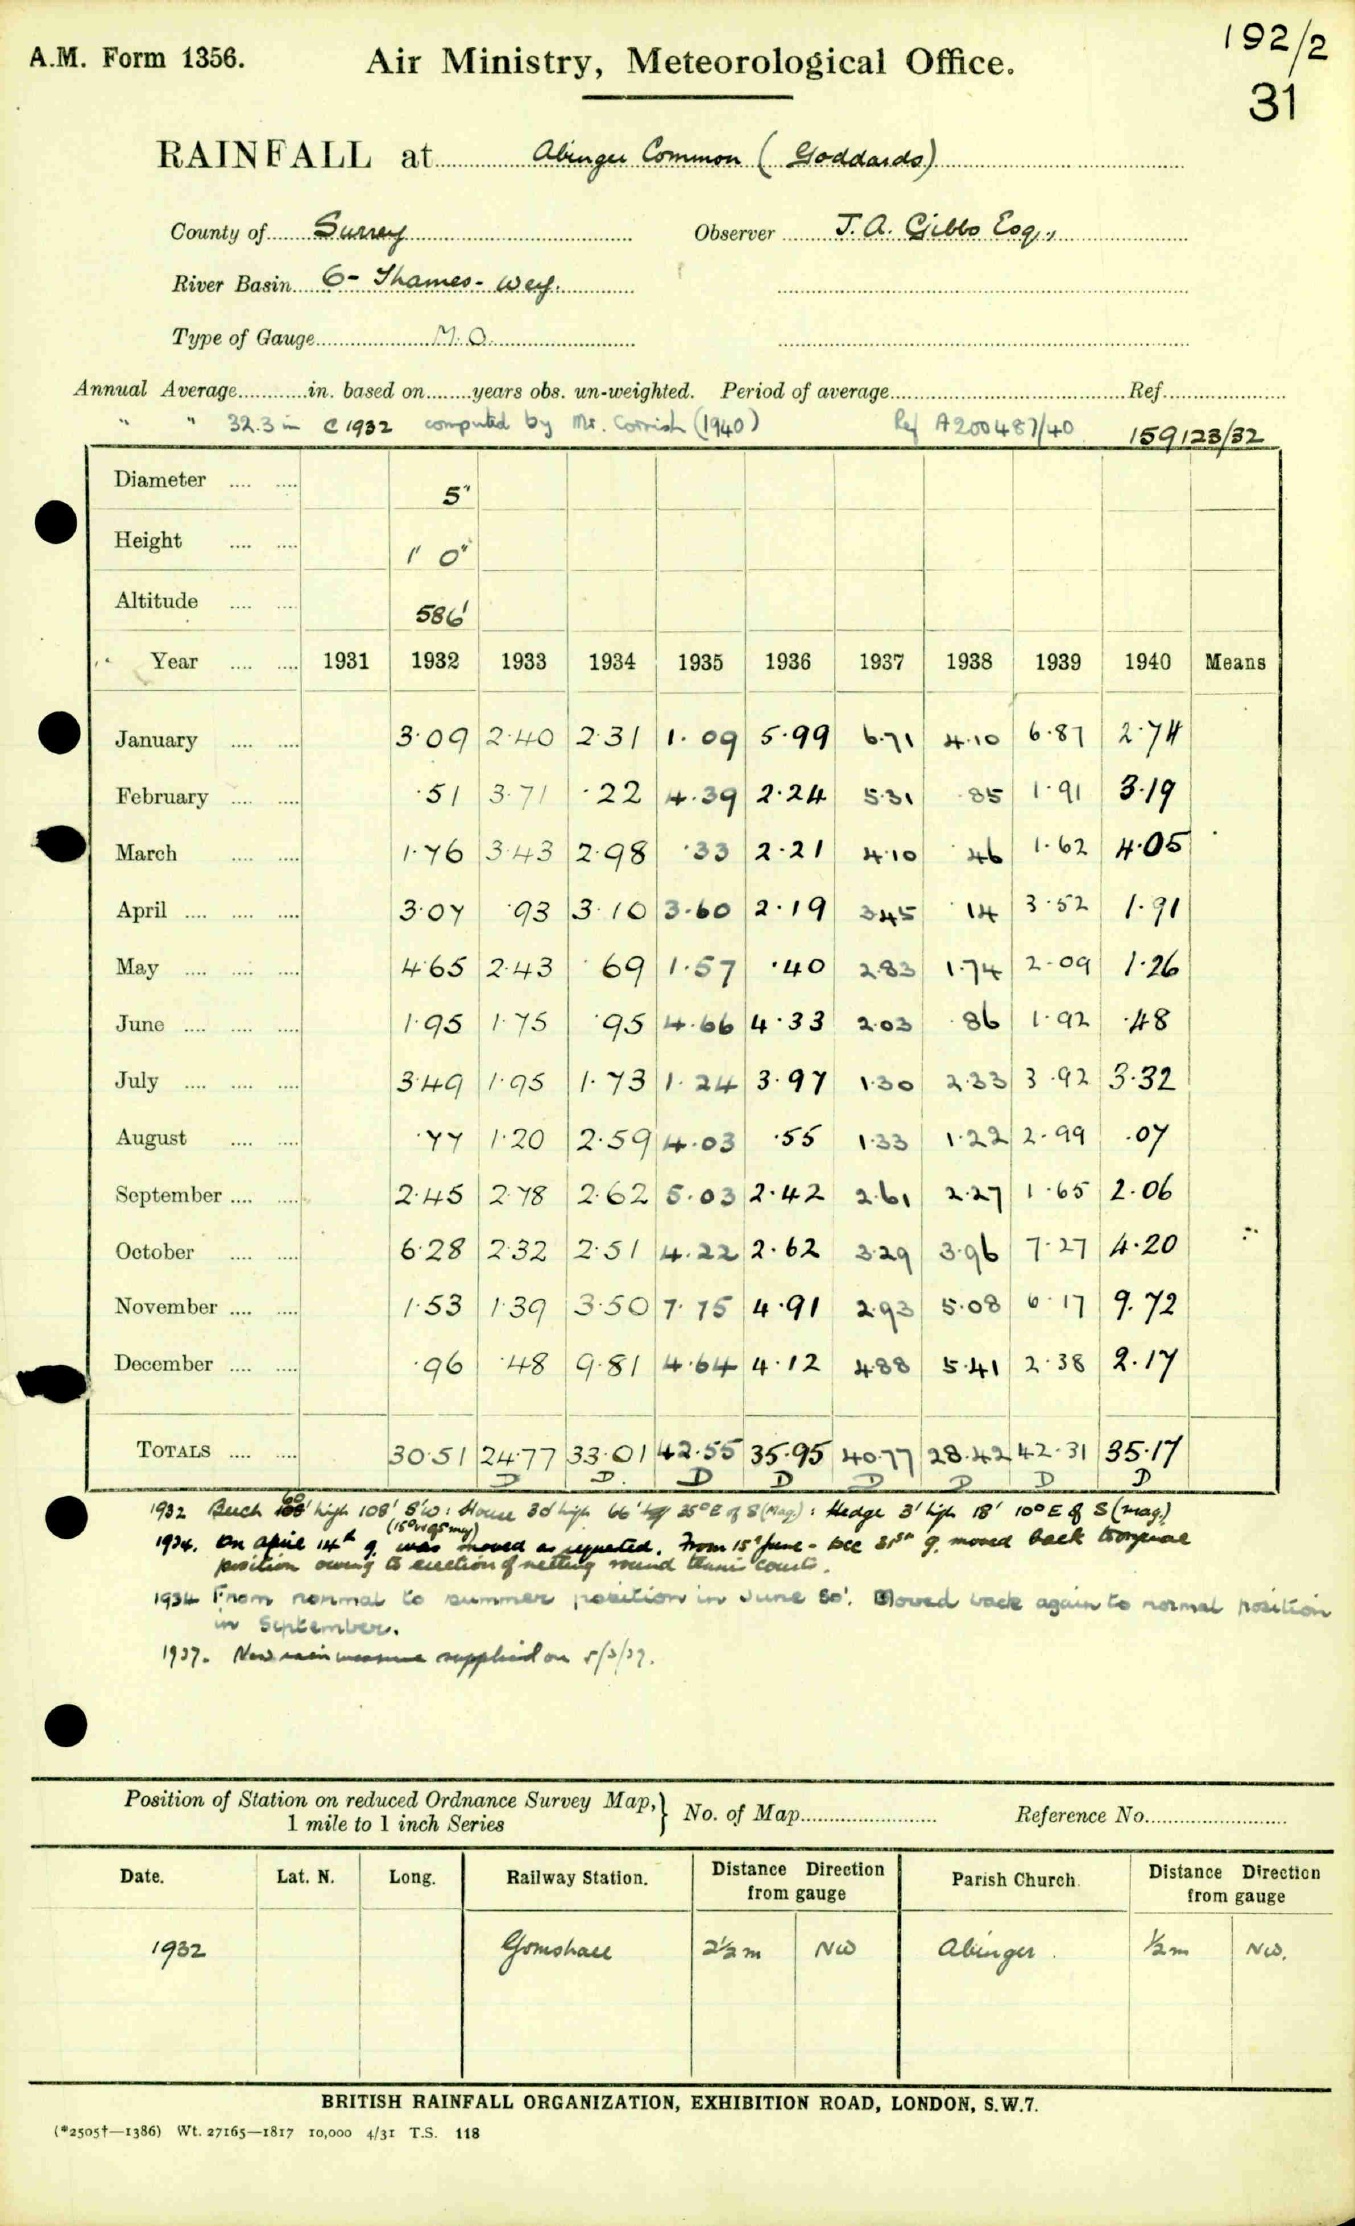 192/2
A.M. Form 1356. Air Ministry, Meteorological Office.
31
RAINFALL at Abinger Common (Goddards)
County of Surrey Observer J. A. Gibbs Esq.,
River Basin 6- Thames - Wey.
Type of Gauge M.O.
Annual Average in. based on years obs. un-weighted. Period of average Ref.
" " 32.3 in C 1932 computed by Mr. Cornish (1940) Ref A200487/40 159123/32
Diameter 5"
Height 1' 0"
Altitude 586'
Year 1931 1932 1933 1934 1935 1936 1937 1938 1939 1940 Means
January 3·09 2·40 2·31 1·09 5·99 6·71 4·10 6·87 2·74
February ·51 3·71 ·22 4·39 2·24 5·31 ·85 1·91 3·19
March 1·76 3·43 2·98 ·33 2·21 4·10 ·46 1·62 4·05
April 3·07 ·93 3·10 3·60 2·19 3·45 ·14 3·52 1·91
May 4·65 2·43 ·69 1·57 ·40 2·83 1·74 2·09 1·26
June 1·95 1·75 ·95 4·66 4·33 2·03 ·86 1·92 ·48
July 3·49 1·95 1·73 1·24 3·97 1·30 2·33 3·92 3·32
August ·77 1·20 2·59 4·03 ·55 1·33 1·22 2·99 ·07
September 2·45 2·78 2·62 5·03 2·42 2·61 2·27 1·65 2·06
October 6·28 2·32 2·51 4·22 2·62 3·29 3·96 7·27 4·20
November 1·53 1·39 3·50 7·75 4·91 2·93 5·08 6·17 9·72
December ·96 ·48 9·81 4·64 4·12 4·88 5·41 2·38 2·17
TOTALS 30·51 24·77 33·01 42·55 35·95 40·77 28·42 42·31 35·17
D D. D D D D D D
1932 Beech 60' high 108' SW: House 30' high 66' 35° E of S (Mag): Hedge 3' high 18' 10° E of S (mag)
1934. On April 14th g. was moved as requested. From 15th June - Dec 31st g. moved back to original
position owing to erection of netting round tennis courts.
1934 From normal to summer position in June 30'. Moved back again to normal position
in September.
1937. New rain measure supplied on 5/3/37.
Position of Station on reduced Ordnance Survey Map, 1 mile to 1 inch Series } No. of Map Reference No.
Date. Lat. N. Long. Railway Station. Distance Direction from gauge Parish Church. Distance Direction from gauge
1932 Gomshall 2½ m NW Abinger. ½ m NW.
BRITISH RAINFALL ORGANIZATION, EXHIBITION ROAD, LONDON, S.W.7.
(*2505†—1386) Wt. 27165—1817 10,000 4/31 T.S. 118